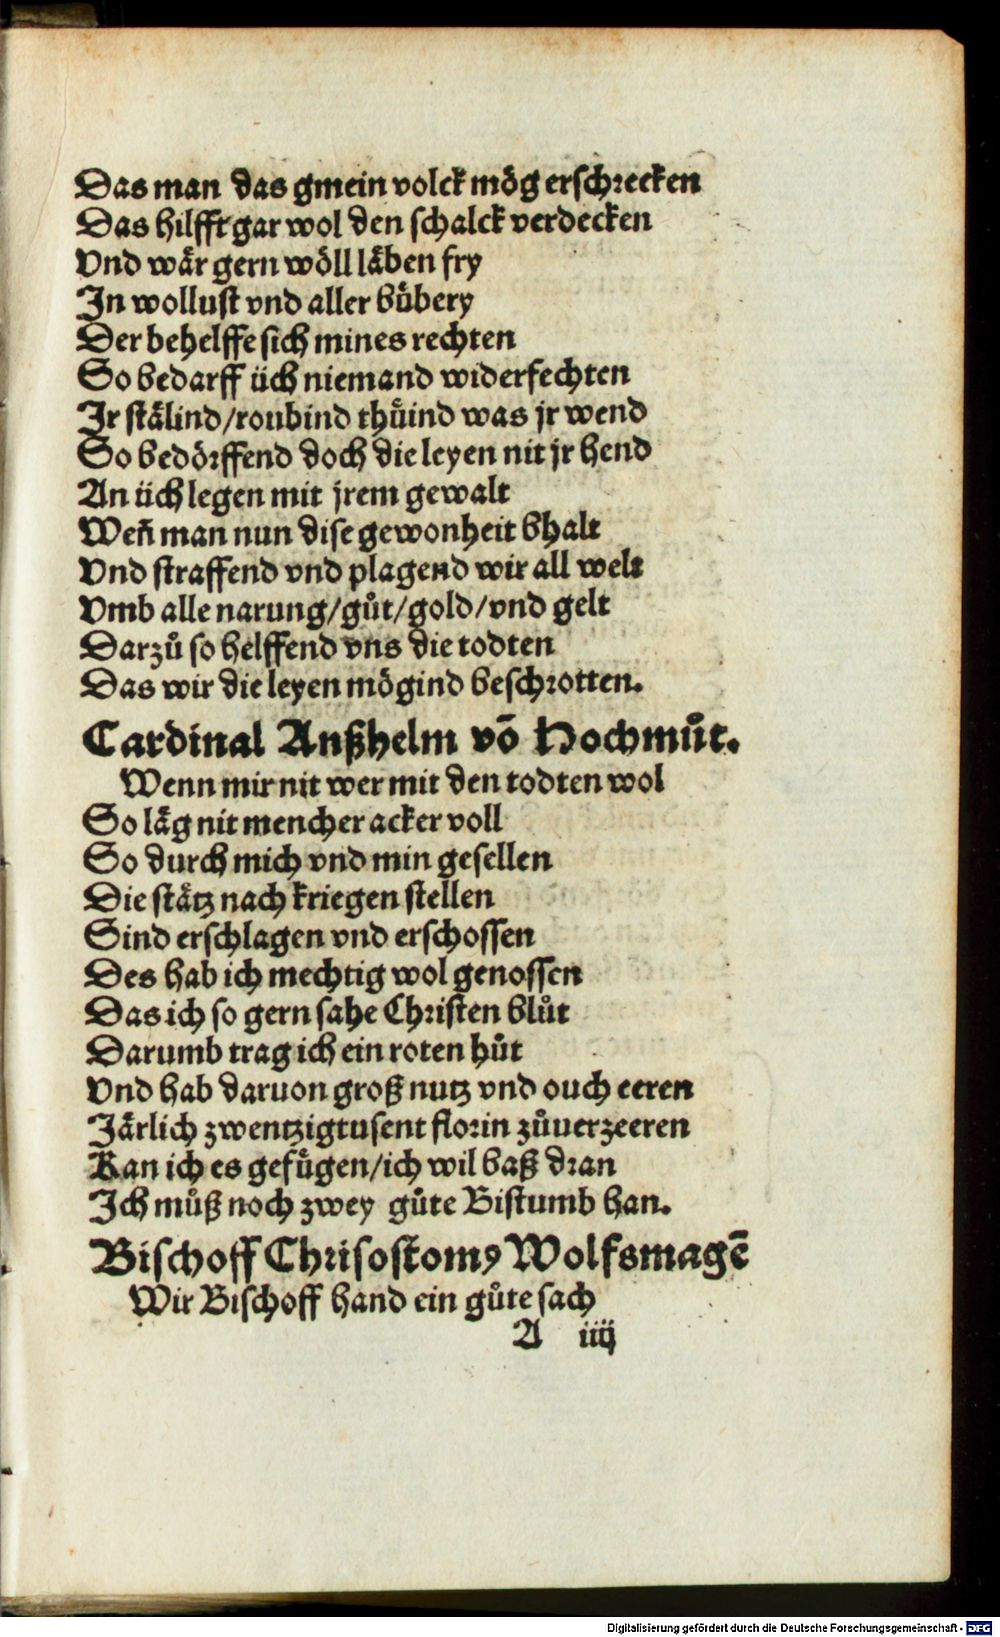 Das man das gmein volck mög erschrecken
Das hilfft gar wol den schalck verdecken
Vnd wär gern wöll läben fry
In wollust vnd aller bůbery
Der behelffe sich mines rechten
So bedarff üch niemand widerfechten
Ir stälind/roubind thuͤind was jr wend
So bedörffend doch die leyen nit jr hend
An üch legen mit jrem gewalt
Weñ man nun dise gewonheit bhalt
Vnd straffend vnd plagend wir all welt
Vmb alle narung/gůt/gold/vnd gelt
Darzů so helffend vns die todten
Das wir die leyen mögind beschrotten.
Cardinal Anßhelm vō Hochmůt.
Wenn mir nit wer mit den todten wol
So läg nit mencher acker voll
So durch mich vnd min gesellen
Die stätz nach kriegen stellen
Sind erschlagen vnd erschossen
Des hab ich mechtig wol genossen
Das ich so gern sahe Christen blůt
Darumb trag ich ein roten hůt
Vnd hab daruon groß nutz vnd ouch eeren
Järlich zwentzigtusent florin zůuerzeeren
Kan ich es gefuͤgen/ich wil baß dran
Ich můß noch zwey gůte Bistumb han.
Bischoff Chrisostomꝰ Wolfsmagē
Wir Bischoff hand ein gůte sach
A iiij
Digitalisierung gefördert durch die Deutsche Forschungsgemeinschaft - DFG